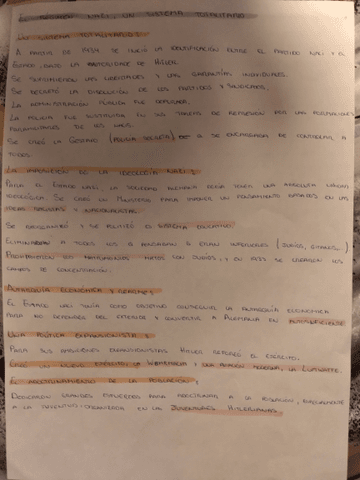 EL RÉGIMEN NAZI, UN SISTEMA TOTALITARIO
UN SISTEMA TOTALITARIO:
A PARTIR DE 1934 SE INICIÓ LA IDENTIFICACIÓN ENTRE EL PARTIDO NAZI Y EL
ESTADO, BAJO LA AUTORIDAD DE HITLER.
SE SUPRIMIERON LAS LIBERTADES Y LAS GARANTÍAS INDIVIDUALES.
SE DECRETÓ LA DISOLUCIÓN DE LOS PARTIDOS Y SINDICATOS.
LA ADMINISTRACIÓN PÚBLICA FUE DEPURADA.
LA POLICÍA FUE SUSTITUIDA EN SUS TAREAS DE REPRESIÓN POR LAS FORMACIONES
PARAMILITARES DE LOS NAZIS.
SE CREÓ LA GESTAPO (POLICÍA SECRETA) Q SE ENCARGABA DE CONTROLAR A
TODOS.
LA IMPOSICIÓN DE LA IDEOLOGÍA NAZI:
PARA EL ESTADO NAZI, LA SOCIEDAD ALEMANA DEBÍA TENER UNA ABSOLUTA UNIDAD
IDEOLÓGICA. SE CREÓ UN MINISTERIO PARA IMPONER UN PENSAMIENTO BASADO EN LAS
IDEAS RACISTAS Y NACIONALISTAS.
SE ORGANIZARÁ Y SE UTILIZÓ EL SISTEMA EDUCATIVO.
ELIMINARON A TODOS LOS Q PENSABAN Q ERAN INFERIORES (JUDÍOS, GITANOS...)
PROHIBIERON LOS MATRIMONIOS MIXTOS CON JUDÍOS, Y EN 1933 SE CREARON LOS
CAMPOS DE CONCENTRACIÓN.
AUTARQUÍA ECONÓMICA Y REARME:
EL ESTADO NAZI TENÍA COMO OBJETIVO CONSEGUIR LA AUTARQUÍA ECONÓMICA
PARA NO DEPENDER DEL EXTERIOR Y CONVERTIR A ALEMANIA EN AUTOSUFICIENTE
UNA POLÍTICA EXPANSIONISTA:
PARA SUS AMBICIONES EXPANSIONISTAS HITLER REFORZÓ EL EJÉRCITO.
CREÓ UN NUEVO EJÉRCITO, LA WEHRMACHT Y UNA AVIACIÓN MODERNA, LA LUFTWAFFE.
EL ADOCTRINAMIENTO DE LA POBLACIÓN:
DEDICARON GRANDES ESFUERZOS PARA ADOCTRINAR A LA POBLACIÓN, ESPECIALMENTE
A LA JUVENTUD ORGANIZADA EN LAS JUVENTUDES HITLERIANAS.